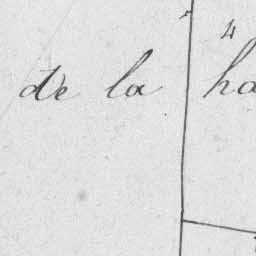 4
de la ha